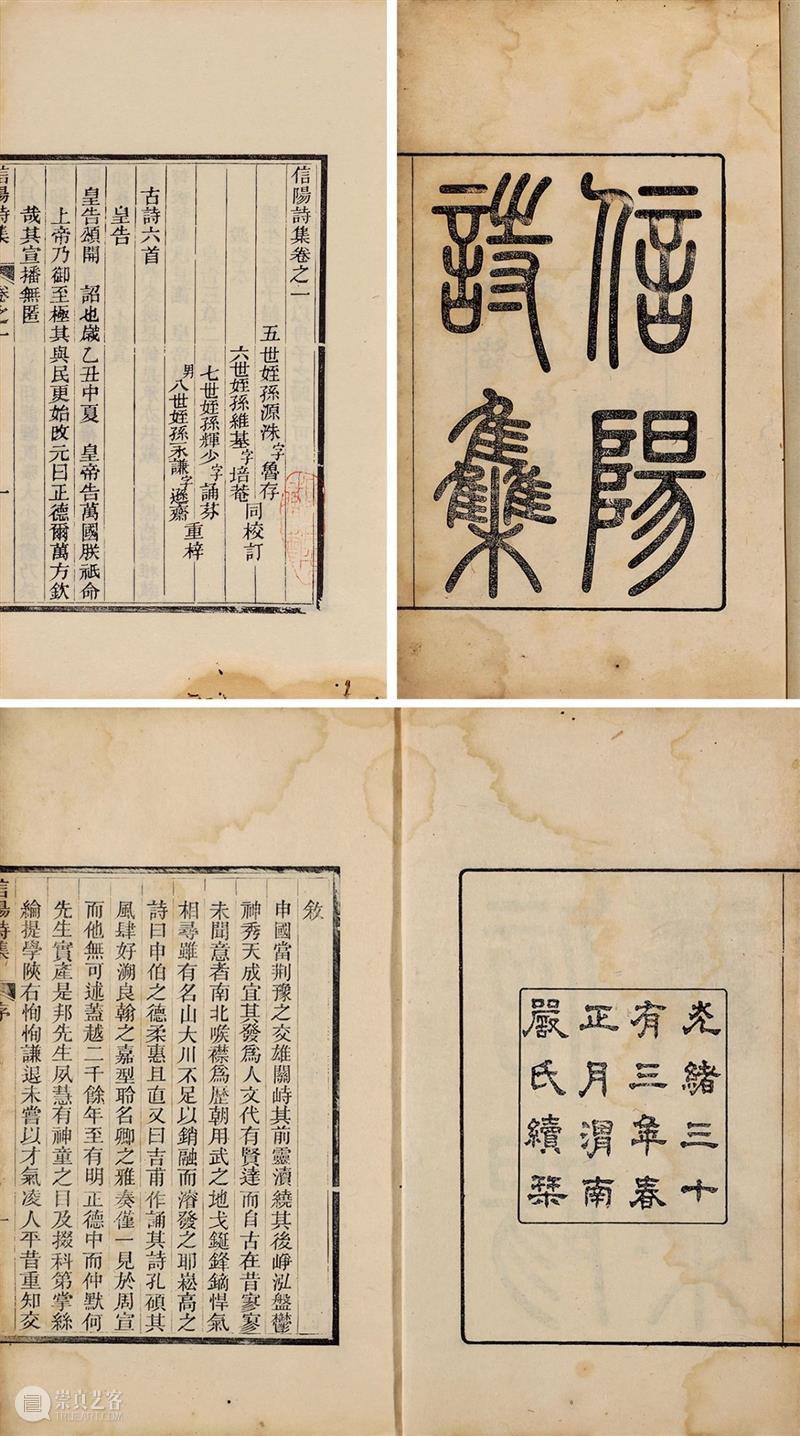 信陽
詩集
信陽詩集卷之一
五世姪孫源洙字魯存
六世姪孫維基字培菴同校訂
七世姪孫輝少字誦芬
男八世姪孫永謙字遜齋重梓
古詩六首
皇告
皇告頌開 詔也歲乙丑中夏 皇帝告萬國朕祇命
上帝乃御至極其與民更始改元曰正德爾萬方欽
哉其宣播無匿
信陽詩集 卷之一 一
光緒三十
有三年春
正月渭南
嚴氏續栞
敘
申國當荆豫之交雄關峙其前靈瀆繞其後崢泓盤鬱
神秀天成宜其發爲人文代有賢達而自古在昔寥寥
未聞意者南北喉襟爲歷朝用武之地戈鋋鋒鏑悍氣
相尋雖有名山大川不足以銷融而濬發之耶崧高之
詩曰申伯之德柔惠且直又曰吉甫作誦其詩孔碩其
風肆好溯良翰之嘉型聆名卿之雅奏僅一見於周宣
而他無可述蓋越二千餘年至有明正德中而仲默何
先生實產是邦先生夙慧有神童之目及掇科第掌絲
綸提學陝右恂恂謙退未嘗以才氣凌人平昔重知交
信陽詩集 序 一
崇真艺客
TRUEART.COM